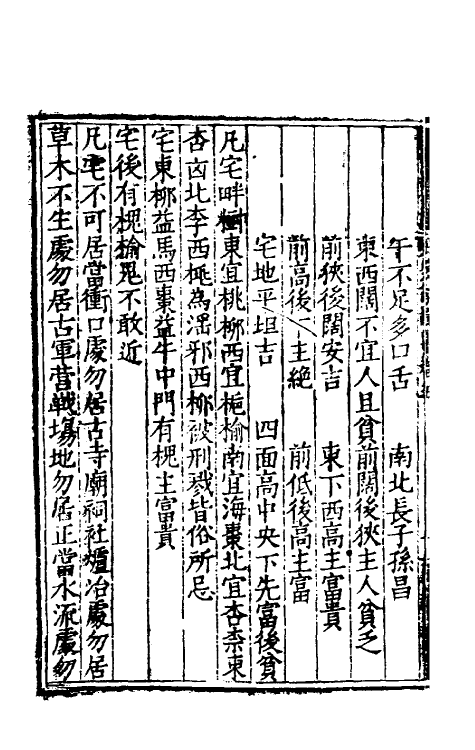 午不足多口舌　南北長子孫昌
東西闊不宜人且貧前闊後狹主人貧乏
前狹後闊安吉　東下西高主富貴
前高後下主絶　前低後高主富
宅地平坦吉　四面高中央下先富後貧
凡宅畔樹東宜桃柳西宜梔榆南宜海棗北宜杏柰東
杏凶北李西桃為滛邪西柳被刑戮皆俗所忌
宅東柳益馬西棗益牛中門有槐主富貴
宅後有槐榆鬼不敢近
凡宅不可居當衝口處勿居古寺廟祠社爐冶處勿居
草木不生處勿居古軍营戦塲地勿居正當水流處勿